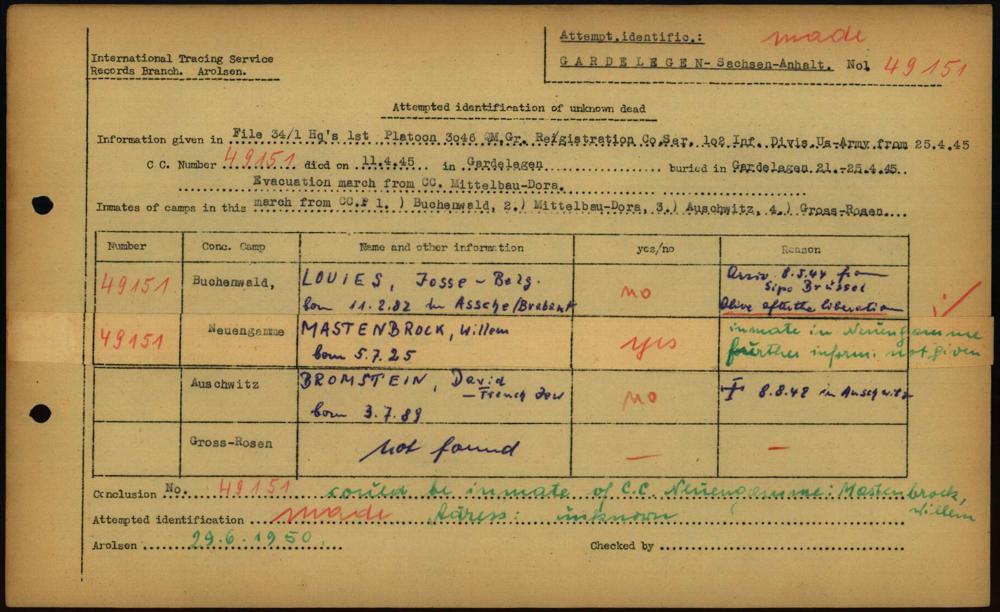 International Tracing Service
Records Branch. Arolsen.
Attempt.identific.: made
GARDELEGEN-Sachsen-Anhalt. No. 49151
Attempted identification of unknown dead
Information given in File 34/1 Hq's 1st Platoon 3046 QM.Gr. Registration Co.Ser. 102 Inf. Divis.Us-Army from 25.4.45
C C. Number 49151 died on 11.4.45 in Gardelegen buried in Gardelegen 21.-25.4.45.
Evacuation march from CC. Mittelbau-Dora.
Inmates of camps in this march from CC.F 1.) Buchenwald, 2.) Mittelbau-Dora, 3.) Auschwitz, 4.) Gross-Rosen
Number Conc. Camp Name and other information yes/no Reason
49151 Buchenwald, LOUIES, Josse - Belg. no Arriv. 8.5.44 from
born 11.2.82 in Assche/Brabant Sipo Brüssel
Alive after the liberation
49151 Neuengamme MASTENBROCK, Willem yes inmate in Neuengamme
born 5.7.25 further inform. not given
Auschwitz BROMSTEIN, David no 8.8.42 in Auschwitz
- French Jew
born 3.7.89
Gross-Rosen not found — —
Conclusion No. 49151 could be inmate of C.C. Neuengamme: Mastenbrock,
Willem
Attempted identification made Adress: unknown
Arolsen 29.6.1950. Checked by